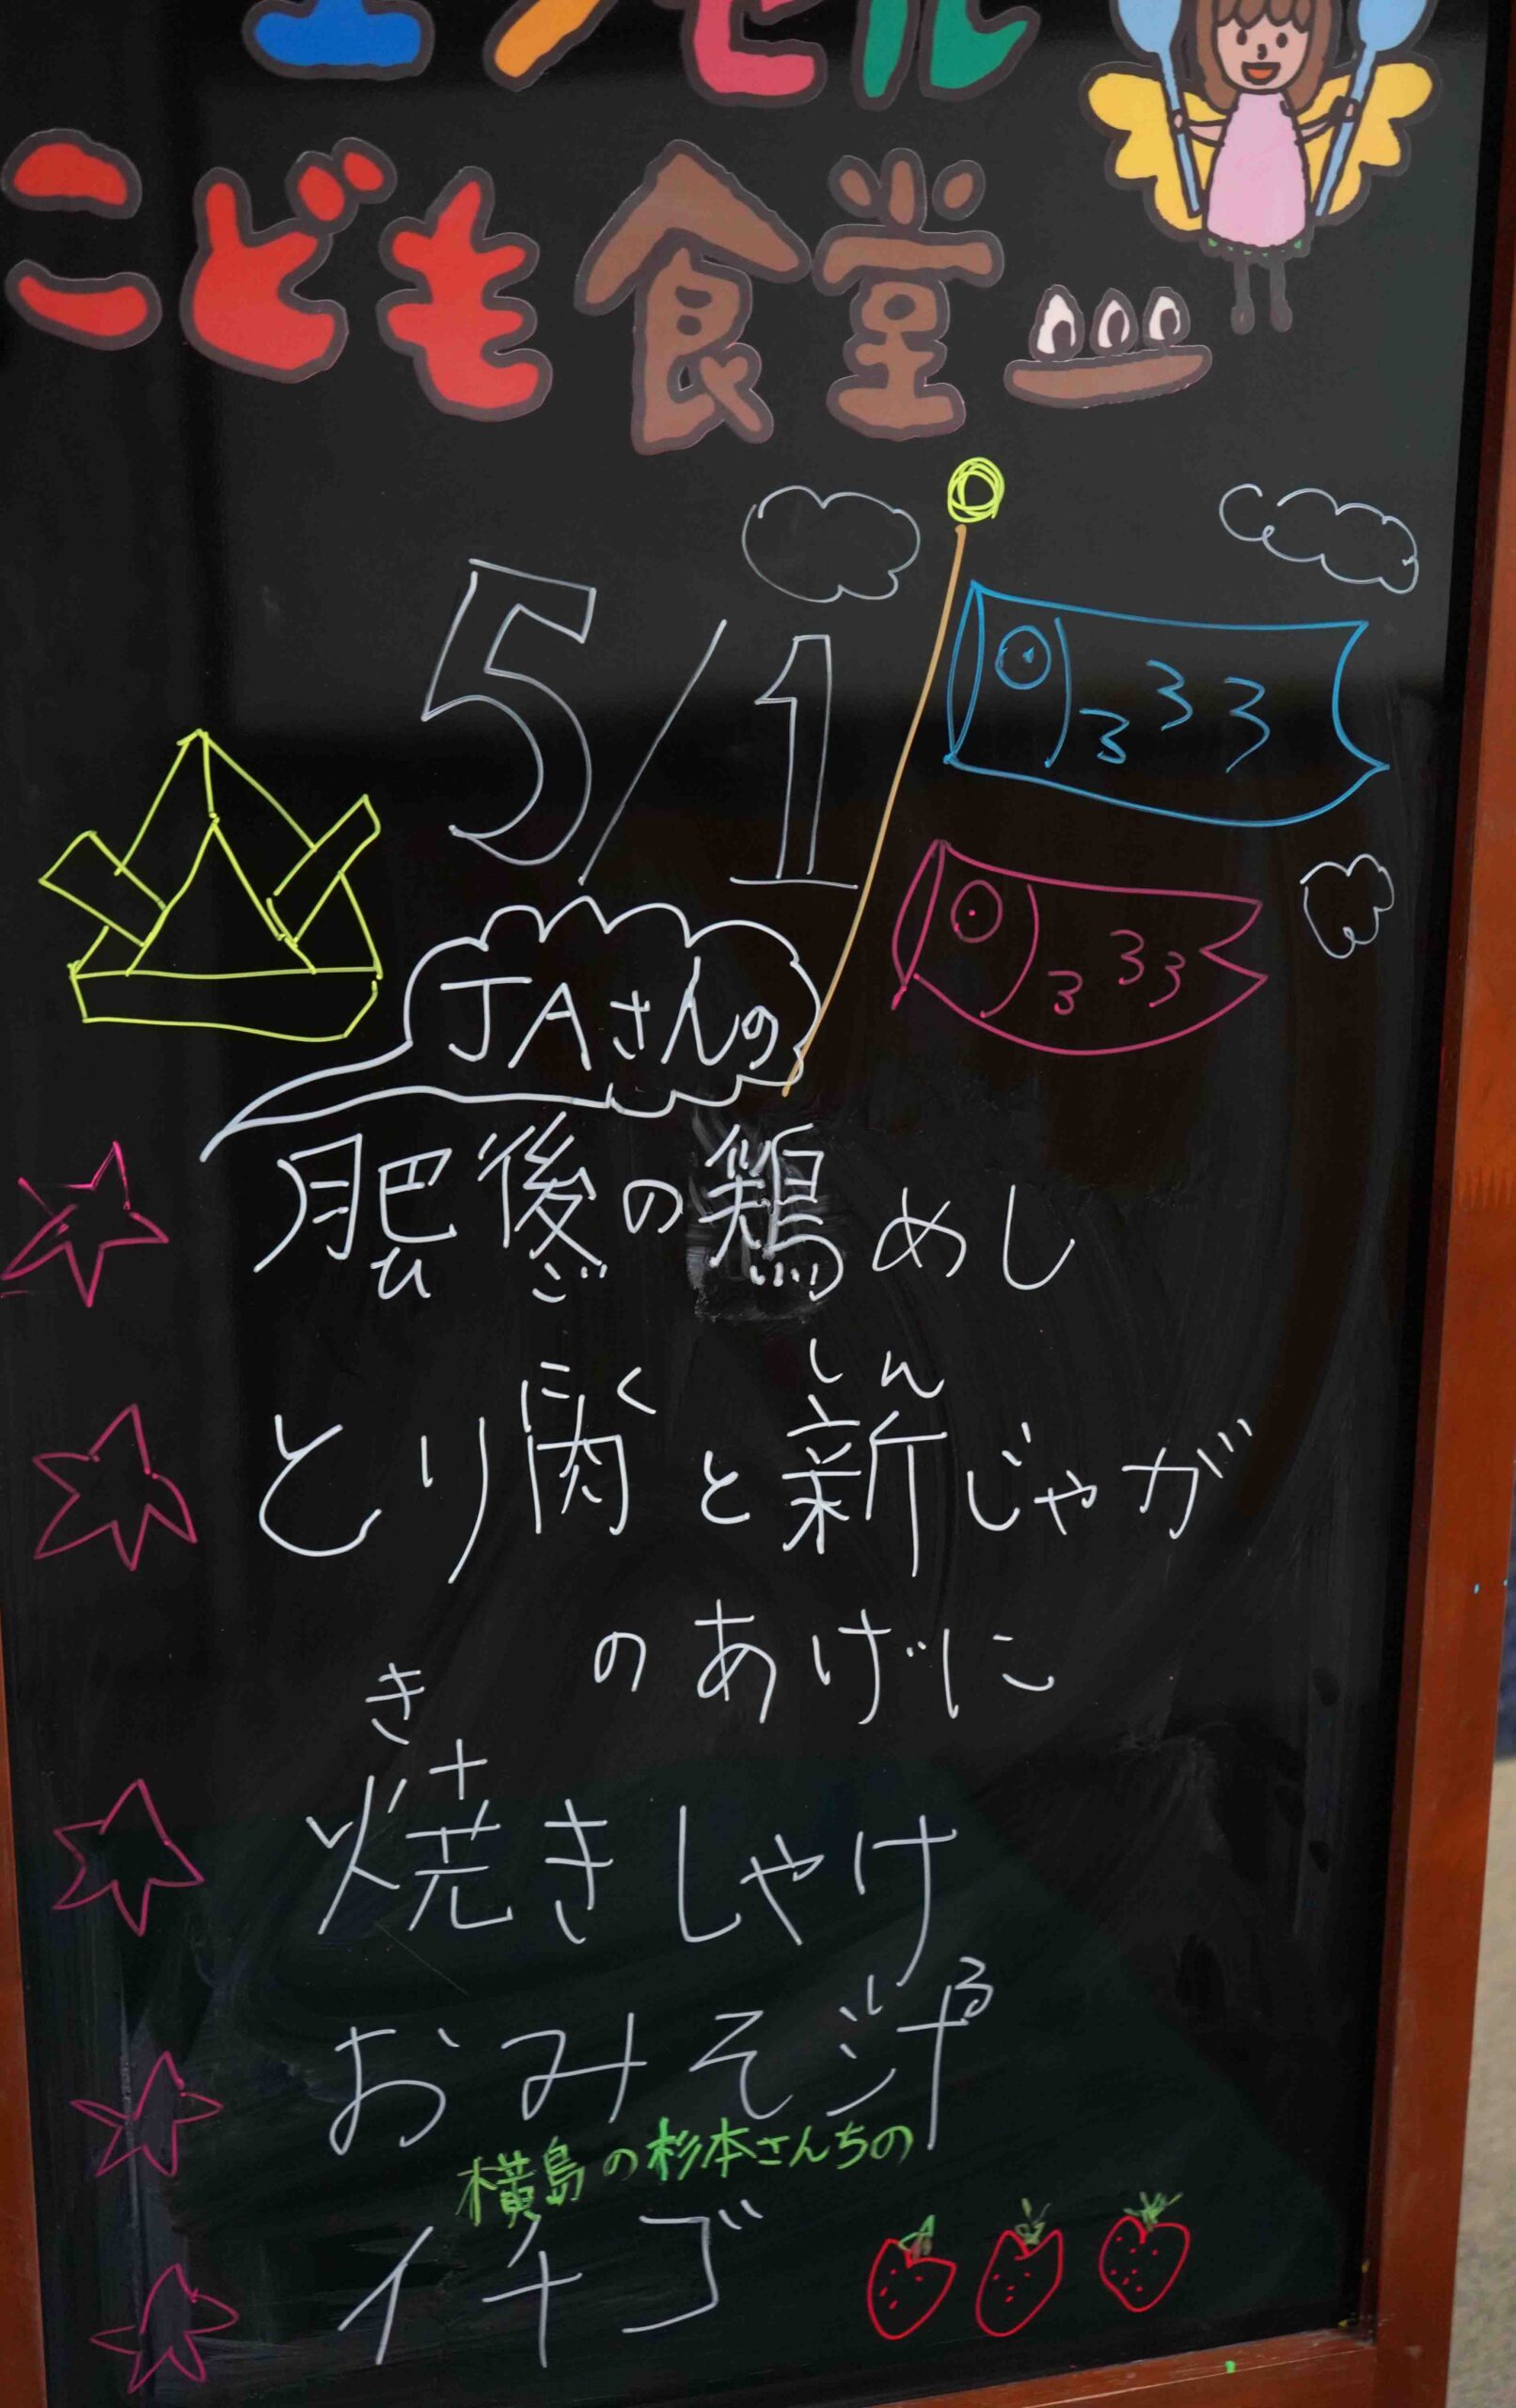 こども食堂
5/1
JAさんの
肥後の鶏めし
ひご
にく しん
とり肉と新じゃが
のあげに
き
焼きしゃけ
おみそ汁
る
横島の杉本さんちの
イチゴ